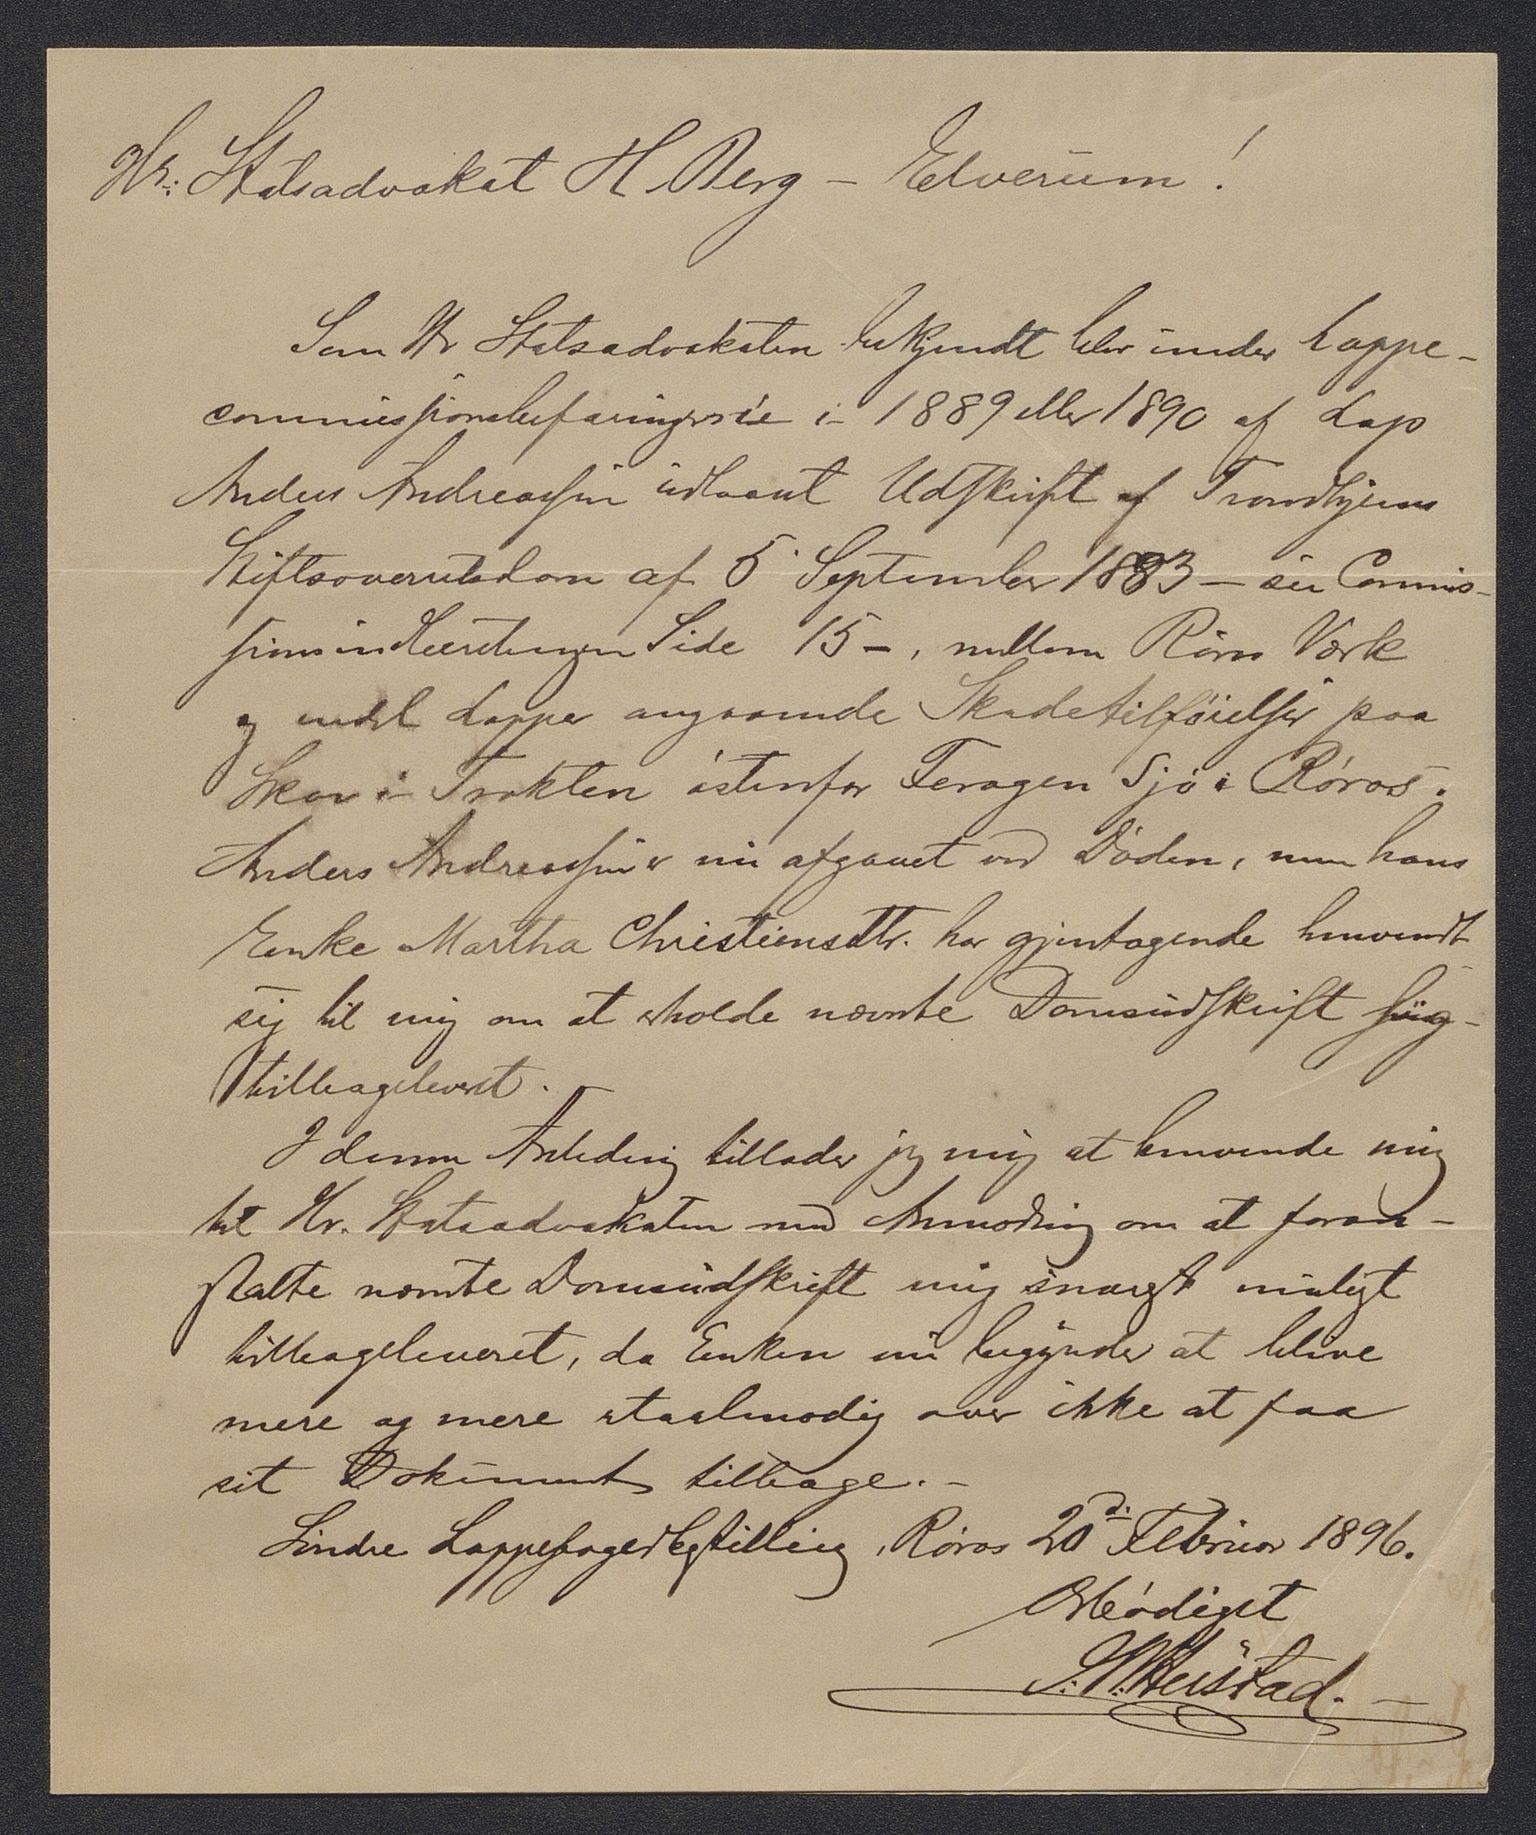 Hr: Statsadvokat H. Berg – Elverum!
Som Hr Statsadvokaten bekjendt blev under Lappe-
commissionsbefaringerne i 1889 eller 1890 af Lap
Anders Andreassen udlaant Udskrift af Trondhjems
Stiftsoverretsdom af 5 September 1883 – se Commis-
sionsindstillingen Side 15 –, mellem Röros Værk
og endel Lapper angaaende Skadetilföielser paa
Skov i Trakten östenfor Feragen Sjö i Röros.
Anders Andreassen er nu afgaaet ved Döden, men hans
Enke Martha Christiensdtr. har gjentagende henvendt
sig til mig om at erholde nævnte Domsudskrift
tilbageleveret.
I denne Anledning tillader jeg mig at henvende mig
til Hr. Statsadvokaten med Anmodning om at foran-
stalte nævnte Domsudskrift mig snarest muligt
tilbageleveret, da Enken nu begynder at blive
mere og mere utaalmodig over ikke at faa
sit Dokument tilbage. –
Söndre Lappefogedbestilling, Röros 20de Februar 1896.
Ærbödigst
Heistad. –